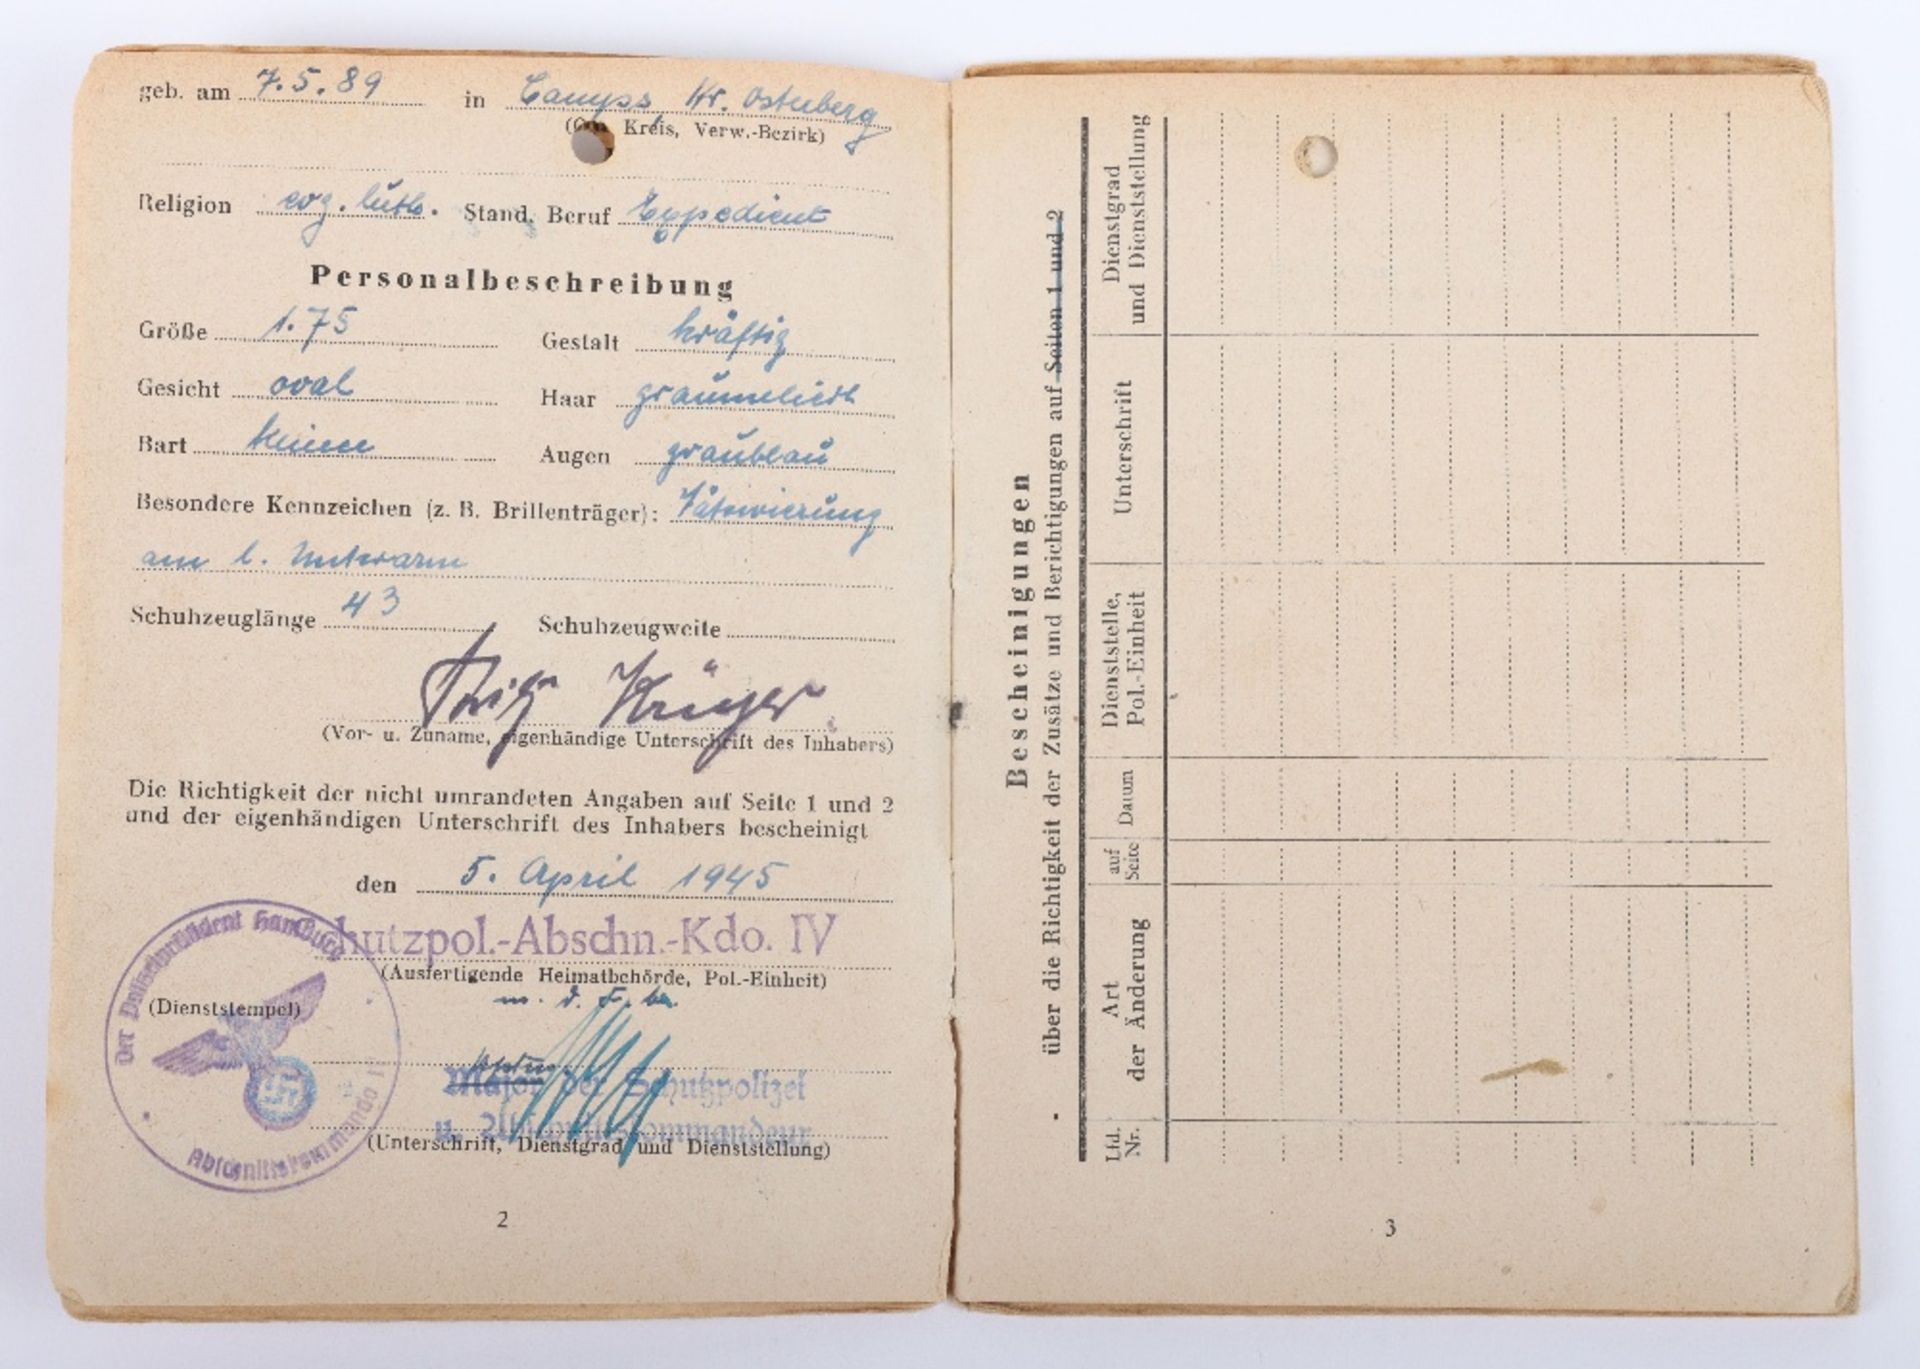 geb. am 7.5.89 in Kr. Osterberg
Kreis, Verw.-Bezirk)
Religion evg. luth. Stand, Beruf Expedient
Personalbeschreibung
Größe 1.75 Gestalt kräftig
Gesicht oval Haar graumeliert
Bart keinen Augen graublau
Besondere Kennzeichen (z. B. Brillenträger): Tätowierung
am l. Unterarm
Schuhzeuglänge 43 Schuhzeugweite
Fritz Krüger
(Vor- u. Zuname, eigenhändige Unterschrift des Inhabers)
Die Richtigkeit der nicht umrandeten Angaben auf Seite 1 und 2
und der eigenhändigen Unterschrift des Inhabers bescheinigt
den 5. April 1945
Schutzpol.-Abschn.-Kdo. IV
(Ausfertigende Heimatbehörde, Pol.-Einheit)
m. d. F. b.
(Dienststempel)
Der Polizeipräsident Hamburg
Abschnittskommando I
Major der Schutzpolizei
u. Abschnittskommandeur
(Unterschrift, Dienstgrad und Dienststellung)
2
Bescheinigungen
über die Richtigkeit der Zusätze und Berichtigungen auf Seiten 1 und 2
Lfd. Nr.
Art der Änderung
auf Seite
Datum
Dienststelle, Pol.-Einheit
Unterschrift
Dienstgrad und Dienststellung
3